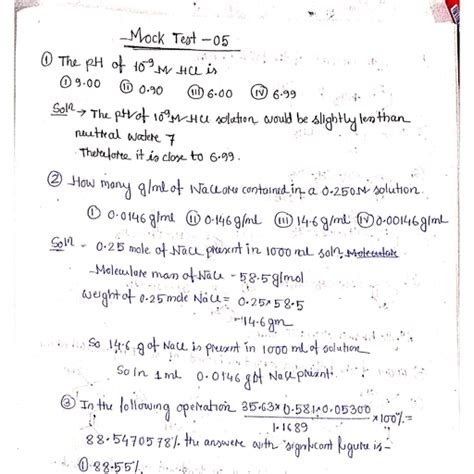 Mock Test - 05
① The pH of 10⁻⁹ M HCl is
ⓘ 9.00 ⓘⓘ 0.90 ⓘⓘⓘ 6.00 ⓘⓥ 6.99
Solⁿ → The pH of 10⁻⁹ M HCl solution would be slightly less than
neutral water 7
Therefore it is close to 6.99.
② How many g/ml of NaCl are contained in a 0.250 M solution.
ⓘ 0.0146 g/ml ⓘⓘ 0.146 g/ml ⓘⓘⓘ 14.6 g/ml ⓘⓥ 0.00146 g/ml
Solⁿ - 0.25 mole of NaCl present in 1000 ml solⁿ.
Moleculare mass of NaCl - 58.5 g/mol
weight of 0.25 mole NaCl = 0.25×58.5
= 14.6 gm
So 14.6 g of NaCl is present in 1000 ml of solution
So In 1 ml 0.0146 g of NaCl present.
③ In the following operation 35.63×0.581×0.05300 / 1.1689 ×100% =
88.5470578% the answere with significant figure is -
ⓘ 88.55%